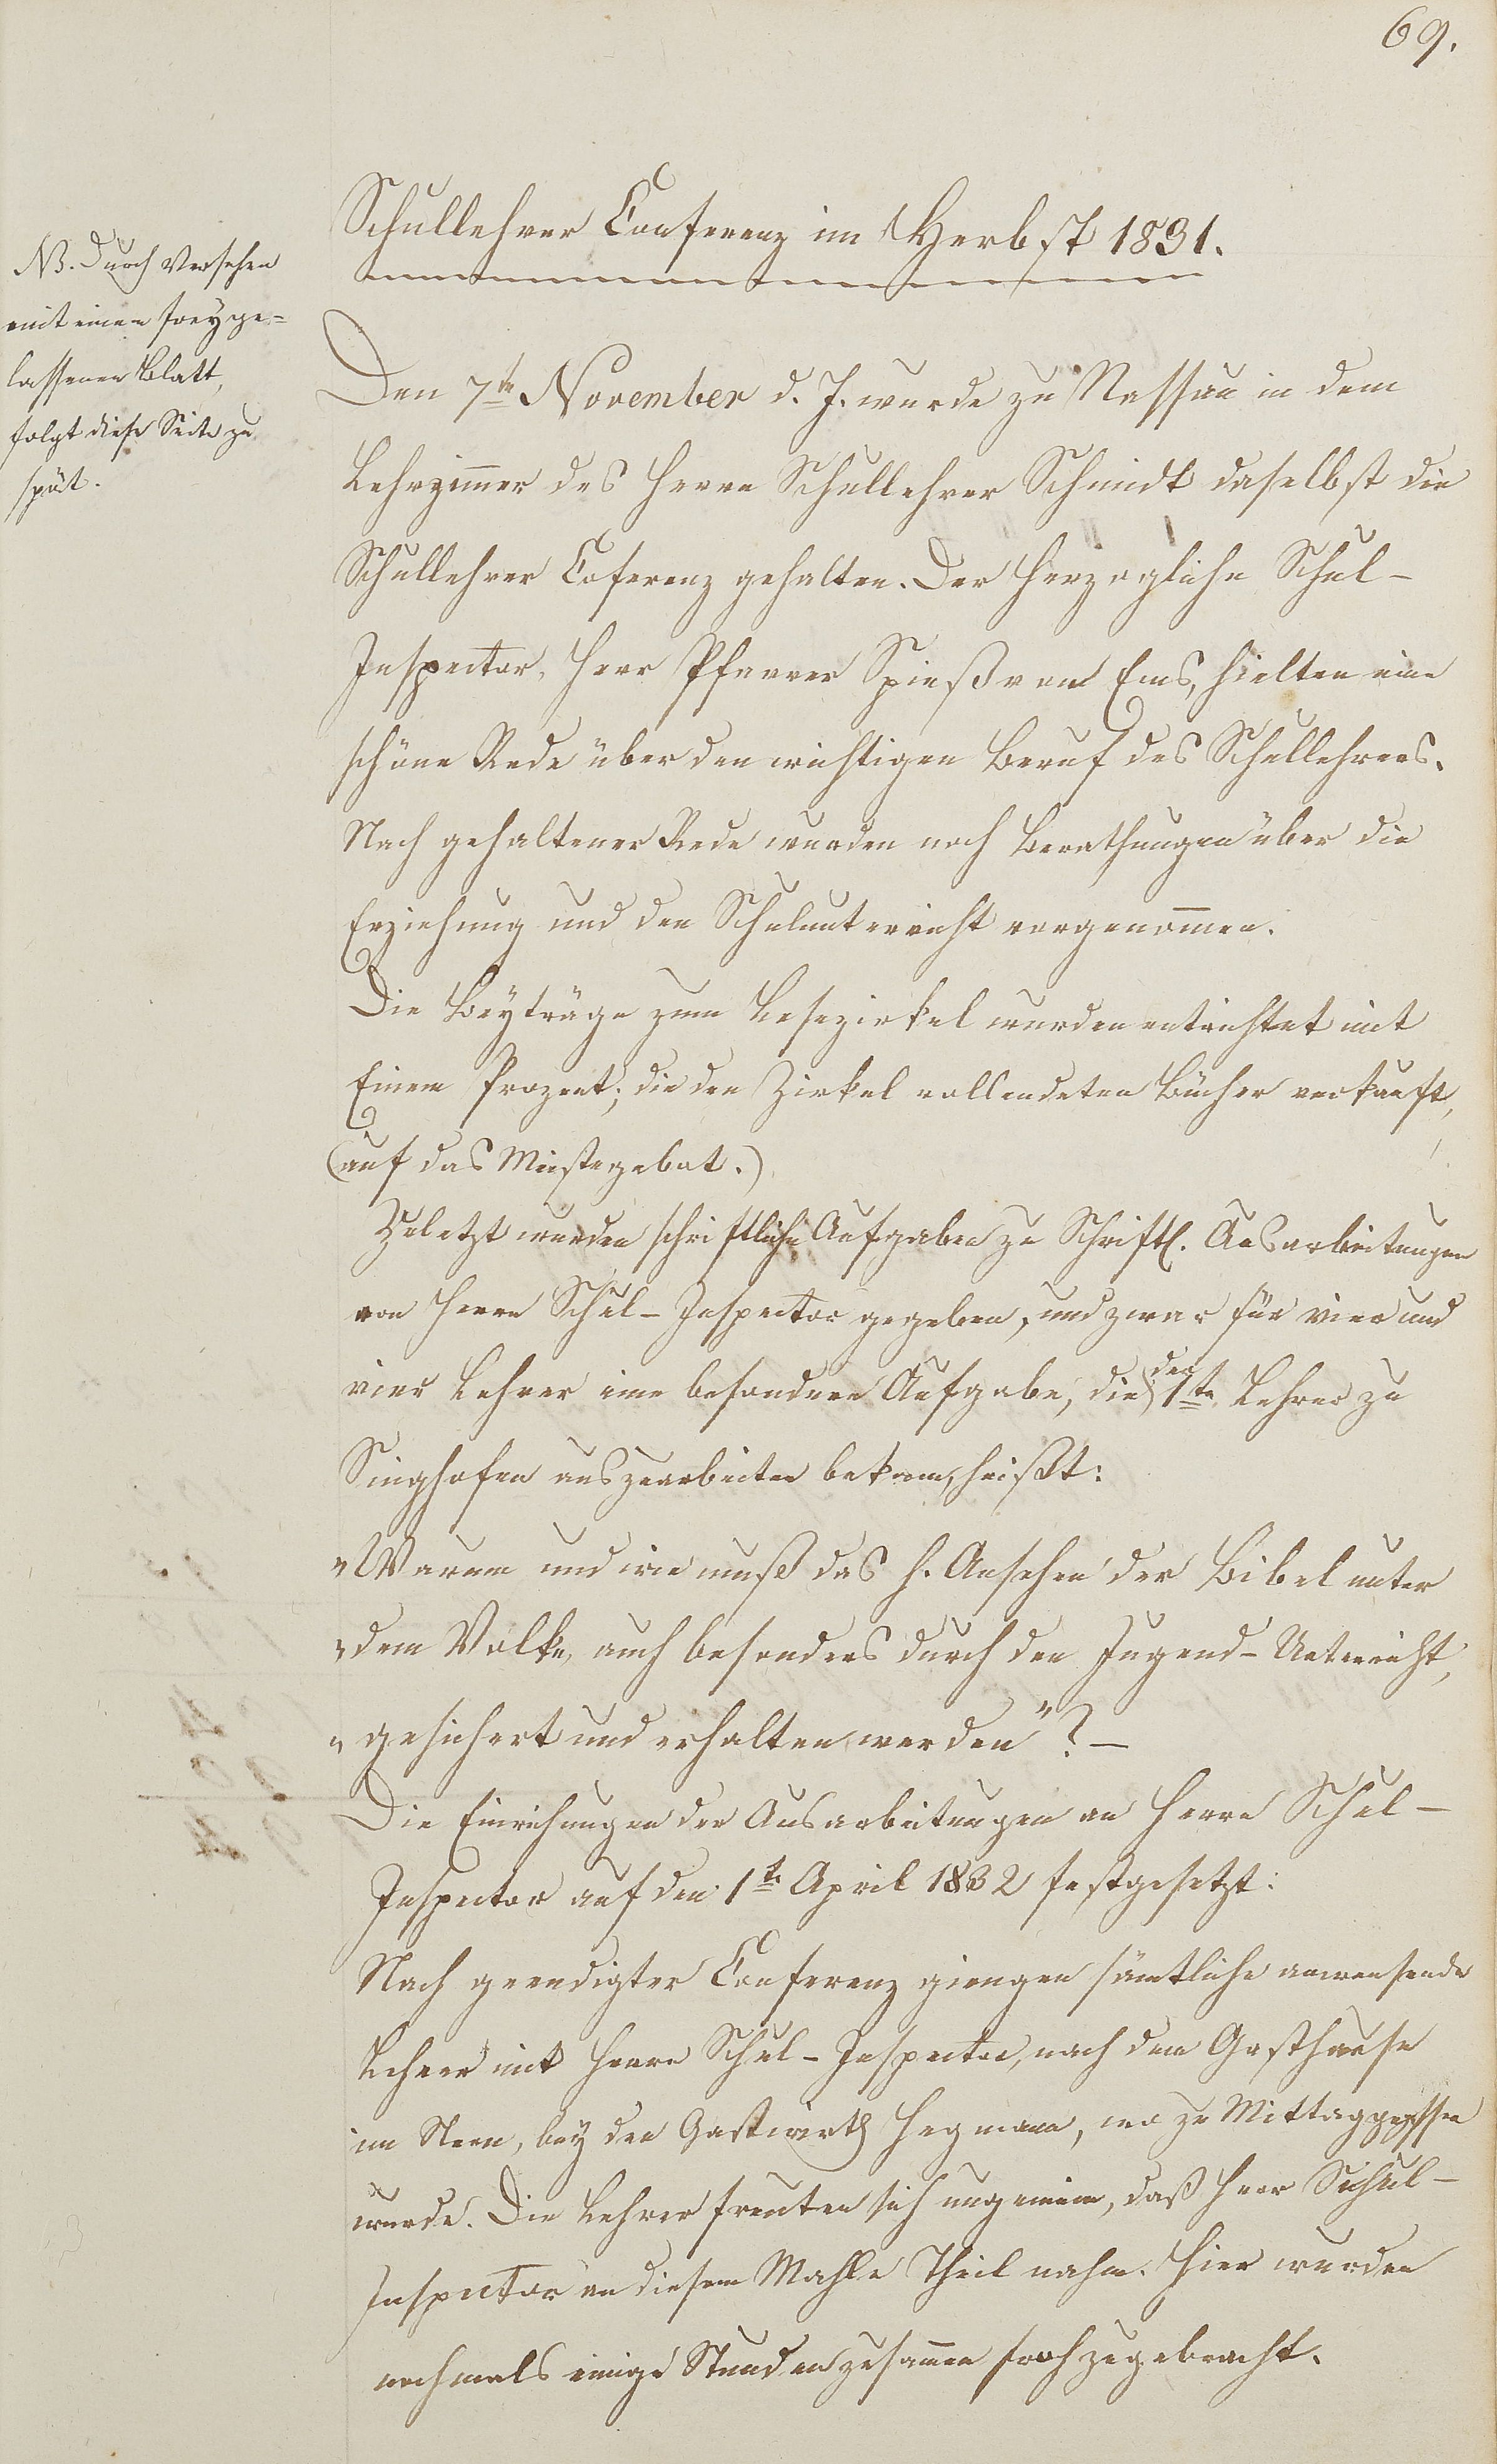 69.
Schullehrer Conferenz im Herbst 1831.
NB. Durch Versehen
mit einem freyge=
lassenen Blatt,
folgt diese Seite zu
spät.
Den 7te November d. J. wurde zu Nassau in dem
Lehrzim̄er des Herrn Schullehrer Schmidt daselbst die
Schullehrer Coferenz gehalten. Der Herzogliche Schul-
Inspector, Herr Pfarrer Spieß von Ems, hielten eine
schöne Rede über den wichtigen Beruf des Schullehrers.
Nach gehaltener Rede wurden noch Berathungen über die
Erziehung und den Schulunterricht vorgenom̄en.
Die Beyträge zum Lesezirkel wurden entrichtet mit
Einem Prozent; die den Zirkel vollendeten Bücher verkauft,
(auf das Meistgebot.)
Zuletzt wurden schriftliche Aufgaben zu Schriftl. Ausarbeitungen
von Herrn Schul-Inspector gegeben, und zwar für vier und
vier Lehrer eine besondere Aufgabe, die der 1te Lehrer zu
Singhofen auszuarbeiten bekam, heißt:
„Warum und wie muß das h. Ansehen der Bibel unter
„dem Volke, auch besonders durch den Jugend-Unterricht,
„gesichert und erhalten werden"? -
Die Einreichungen der Ausarbeitungen an Herrn Schul-
Inspector auf den 1te April 1832 festgesetzt:
Nach geendigter Conferenz giengen sämtliche anwesende
Lehrer mit Herrn Schul-Inspector, nach dem Gasthause
im Stern, bey den Gastwirth Hegmann, wo zu Mittaggegessen
wurde. Die Lehrer freuten sich ungemein, daß Herr Schul-
Inspector an diesem Mahle Theil nahm. Hier wurden
nochmals einige Stunden zusam̄en froh zugebracht.